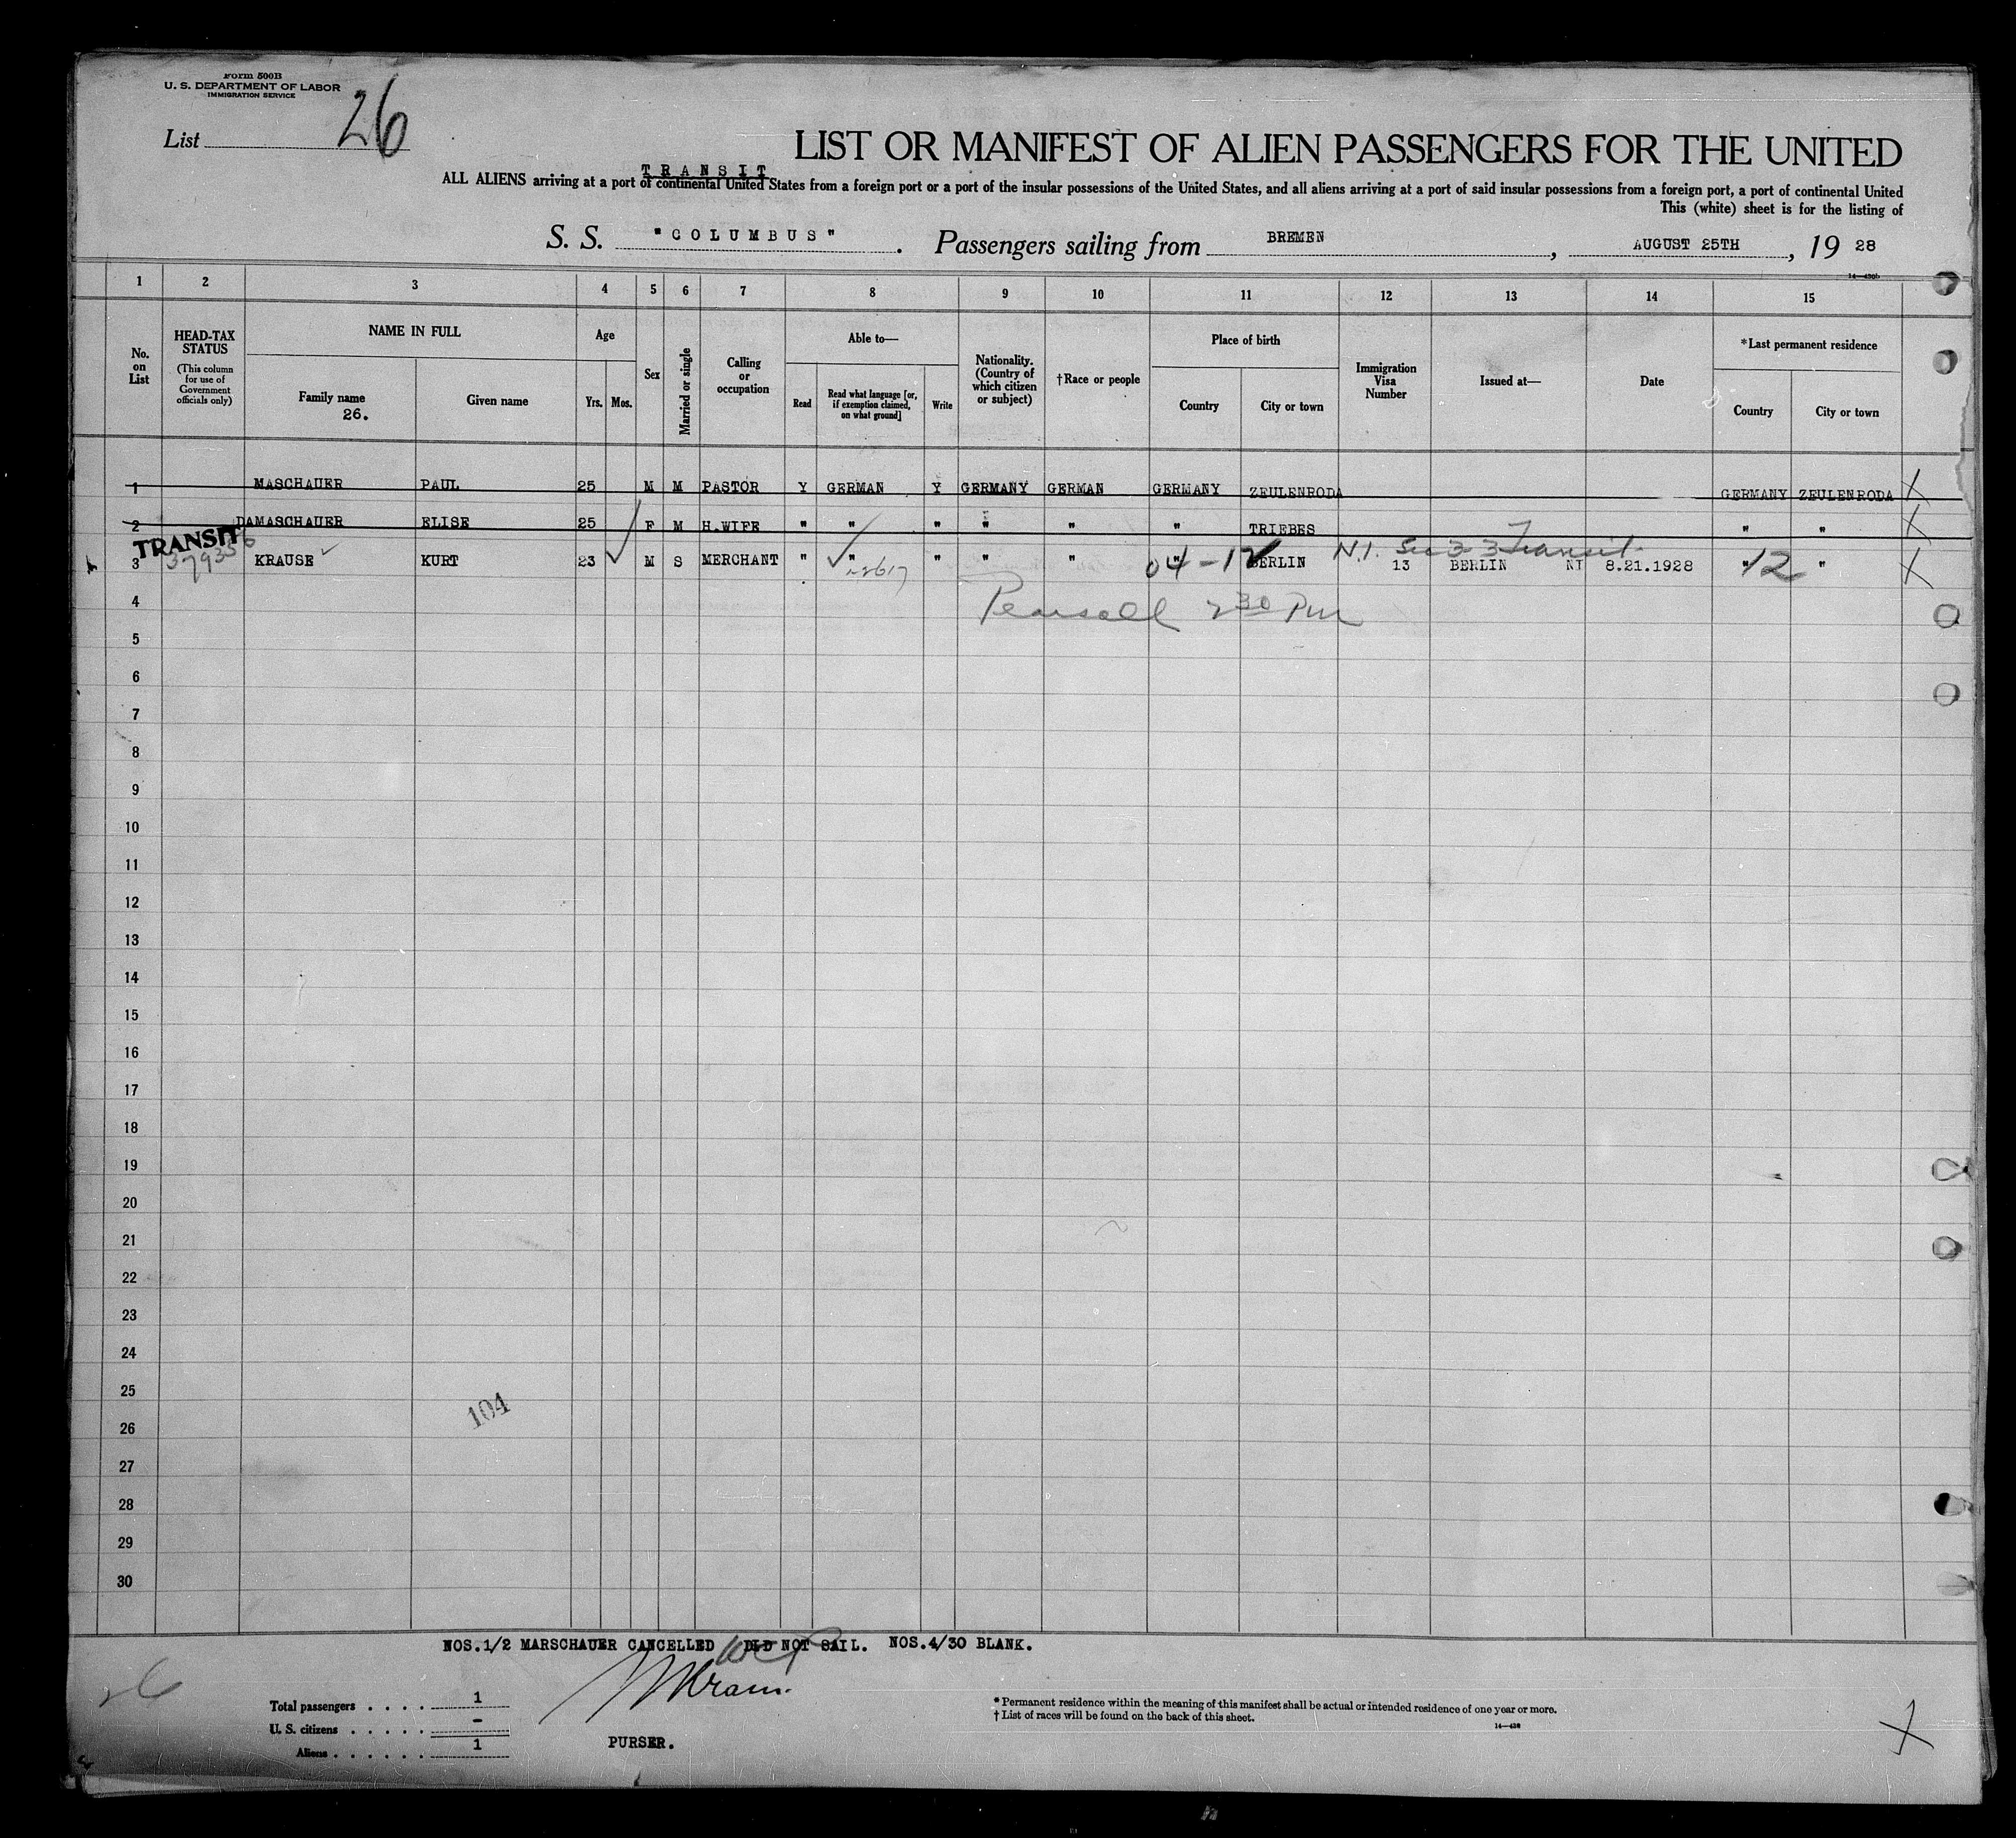 Form 500B
U. S. DEPARTMENT OF LABOR
IMMIGRATION SERVICE
List 26
LIST OR MANIFEST OF ALIEN PASSENGERS FOR THE UNITED
TRANSIT
ALL ALIENS arriving at a port of continental United States from a foreign port or a port of the insular possessions of the United States, and all aliens arriving at a port of said insular possessions from a foreign port, a port of continental United
This (white) sheet is for the listing of
S. S. "COLUMBUS". Passengers sailing from BREMEN, AUGUST 25TH, 1928
14—430b
1 2 3 4 5 6 7 8 9 10 11 12 13 14 15
No. on List
HEAD-TAX STATUS
(This column for use of Government officials only)
NAME IN FULL
Family name
26.
Given name
Age
Yrs. Mos.
Sex
Married or single
Calling or occupation
Able to—
Read
Read what language [or, if exemption claimed, on what ground]
Write
Nationality. (Country of which citizen or subject)
†Race or people
Place of birth
Country
City or town
Immigration Visa Number
Issued at—
Date
*Last permanent residence
Country
City or town
1 MASCHAUER PAUL 25 M M PASTOR Y GERMAN Y GERMANY GERMAN GERMANY ZEULENRODA GERMANY ZEULENRODA X
2 DAMASCHAUER ELISE 25 F M H.WIFE " " " " " " TRIEBES " " X
TRANSIT
379356
3 KRAUSE KURT 23 M S MERCHANT " " " " " " BERLIN 13 BERLIN NI 8.21.1928 " " X
04-12
N.I. Sec 3-3 Transit.
12
Pearsall 2 30 Pm
4
5
6
7
8
9
10
11
12
13
14
15
16
17
18
19
20
21
22
23
24
25
104
26
27
28
29
30
NOS.1/2 MARSCHAUER CANCELLED DID NOT SAIL. NOS.4/30 BLANK.
26
Total passengers . . . . 1
U. S. citizens . . . . . -
Aliens . . . . . . 1
PURSER.
* Permanent residence within the meaning of this manifest shall be actual or intended residence of one year or more.
† List of races will be found on the back of this sheet.
14—430
X